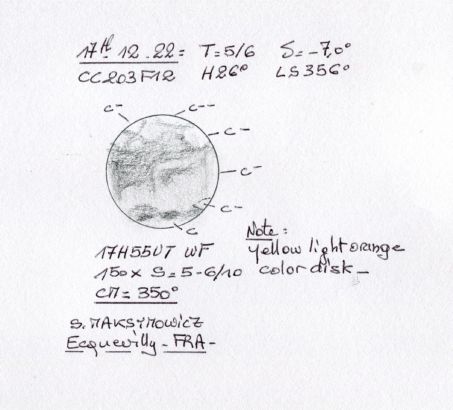 17th 12.22= T=5/6 S=-7,0°
CC203F12 H26° LS356°
c- c--
c-
c-
c-
c
17H55UT WF
150x S=5-6/10
CM=350°
Note=
yellow light orange
color disk-
S. MAKSYMOWICZ
Ecquevilly-FRA-